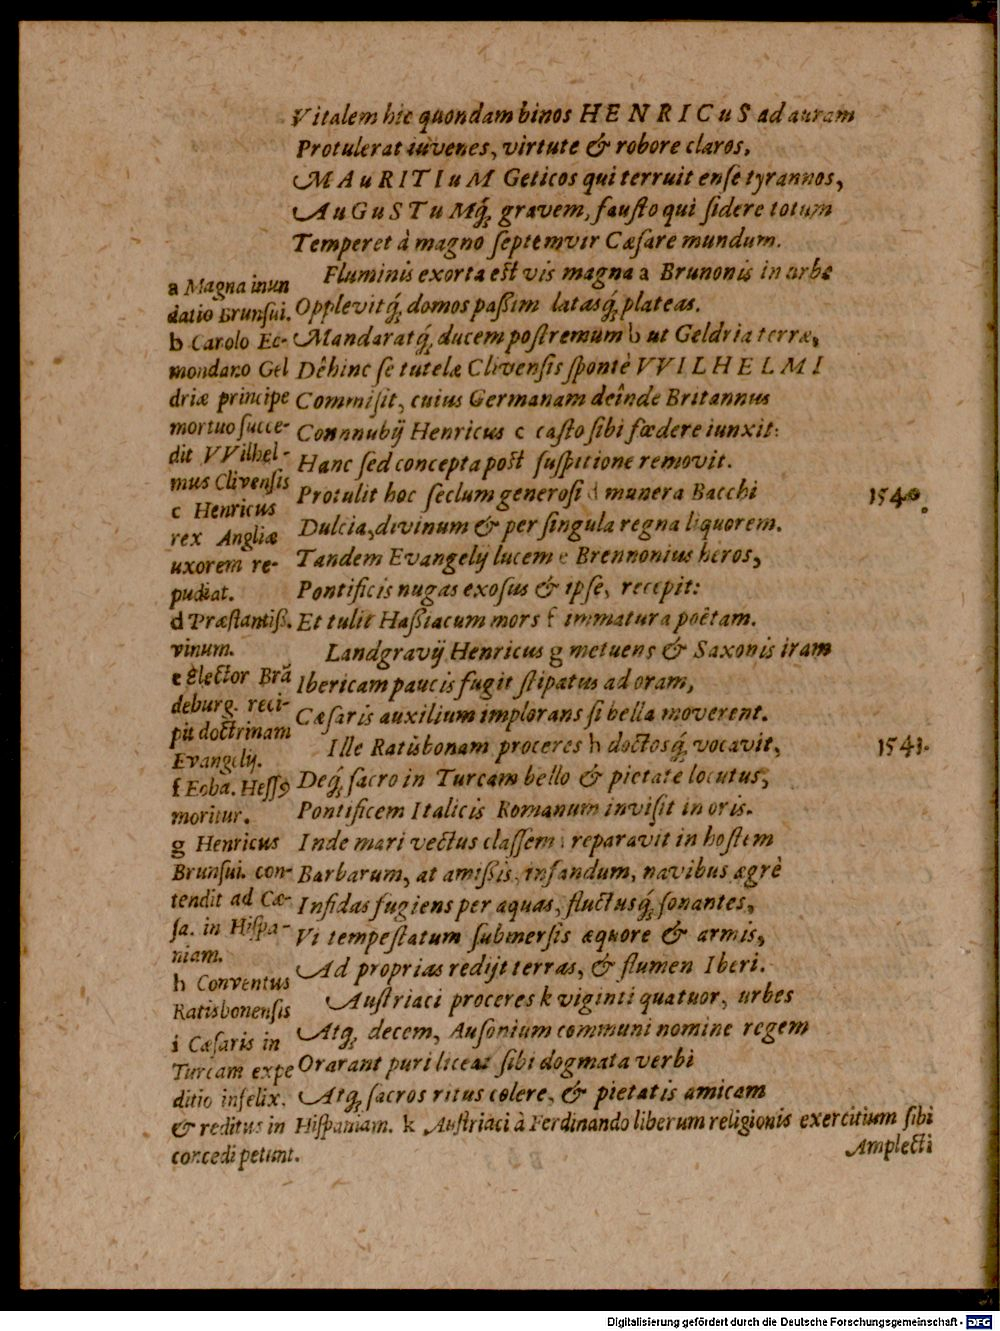 Vitalem hic quondam binos HENRICuS ad auram
Protulerat iuvenes, virtute & robore claros,
MAuRITIuM Geticos qui terruit enſe tyrannos,
AuGuSTuMq́ꝫ gravem, fauſto qui ſidere totum
Temperet à magno ſeptemvir Cæſare mundum.
Fluminis exorta eſt vis magna a Brunonis in urbe
Opplevitq́ꝫ domos paßim latasq́ꝫ plateas.
Mandaratq́ꝫ ducem poſtremum b ut Geldria terræ,
Dêhinc ſe tutelæ Clivenſis ſpontè VVILHELMI
Commiſit, cuius Germanam deînde Britannus
Connnubij Henricus c caſto ſibi fœdere iunxit:
Hanc ſed concepta poſt ſuſpitione removit.
Protulit hoc ſeclum generoſi d munera Bacchi
1540.
Dulcia, divinum & per ſingula regna liquorem.
Tandem Evangelij lucem e Brennonius heros,
Pontificis nugas exoſus & ipſe, recepit:
Et tulit Haßiacum mors f immatura poëtam.
Landgravij Henricus g metuens & Saxonis iram
Ibericam paucis fugit ſtipatus ad oram,
Cæſaris auxilium implorans ſi bella moverent.
Ille Ratisbonam proceres h doctosq́ꝫ vocavit,
1541.
Deq́ꝫ ſacro in Turcam bello & pietate locutus,
Pontificem Italicis Romanum inviſit in oris.
Inde mari vectus claſſem i reparavit in hoſtem
Barbarum, at amißis, infandum, navibus ægrè
Infidas fugiens per aquas, fluctusq́ꝫ ſonantes,
Vi tempeſtatum ſubmerſis æquore & armis,
Ad proprias redijt terras, & flumen Iberi.
Auſtriaci proceres k viginti quatuor, urbes
Atqꝫ decem, Auſonium communi nomine regem
Orarant puri liceat ſibi dogmata verbi
Atqꝫ ſacros ritus colere, & pietatis amicam
a Magna inun
datio Brunſui.
b Carolo Ec-
mondano Gel
driæ principe
mortuo ſucce-
dit VVilhel-
mus Clivenſis
c Henricus
rex Angliæ
uxorem re-
pudiat.
d Præſtantiß.
vinum.
e Elector Brã
deburg. reci-
pit doctrinam
Evangelij.
f Eoba. Heſſꝰ
moritur.
g Henricus
Brunſui. con-
tendit ad Cæ-
ſa. in Hiſpa-
niam.
h Conventus
Ratisbonenſis
i Cæſaris in
Turcam expe
ditio infelix.
& reditus in Hiſpaniam. k Auſtriaci à Ferdinando liberum religionis exercitium ſibi
concedi petunt.
Amplecti
Digitalisierung gefördert durch die Deutsche Forschungsgemeinschaft - DFG